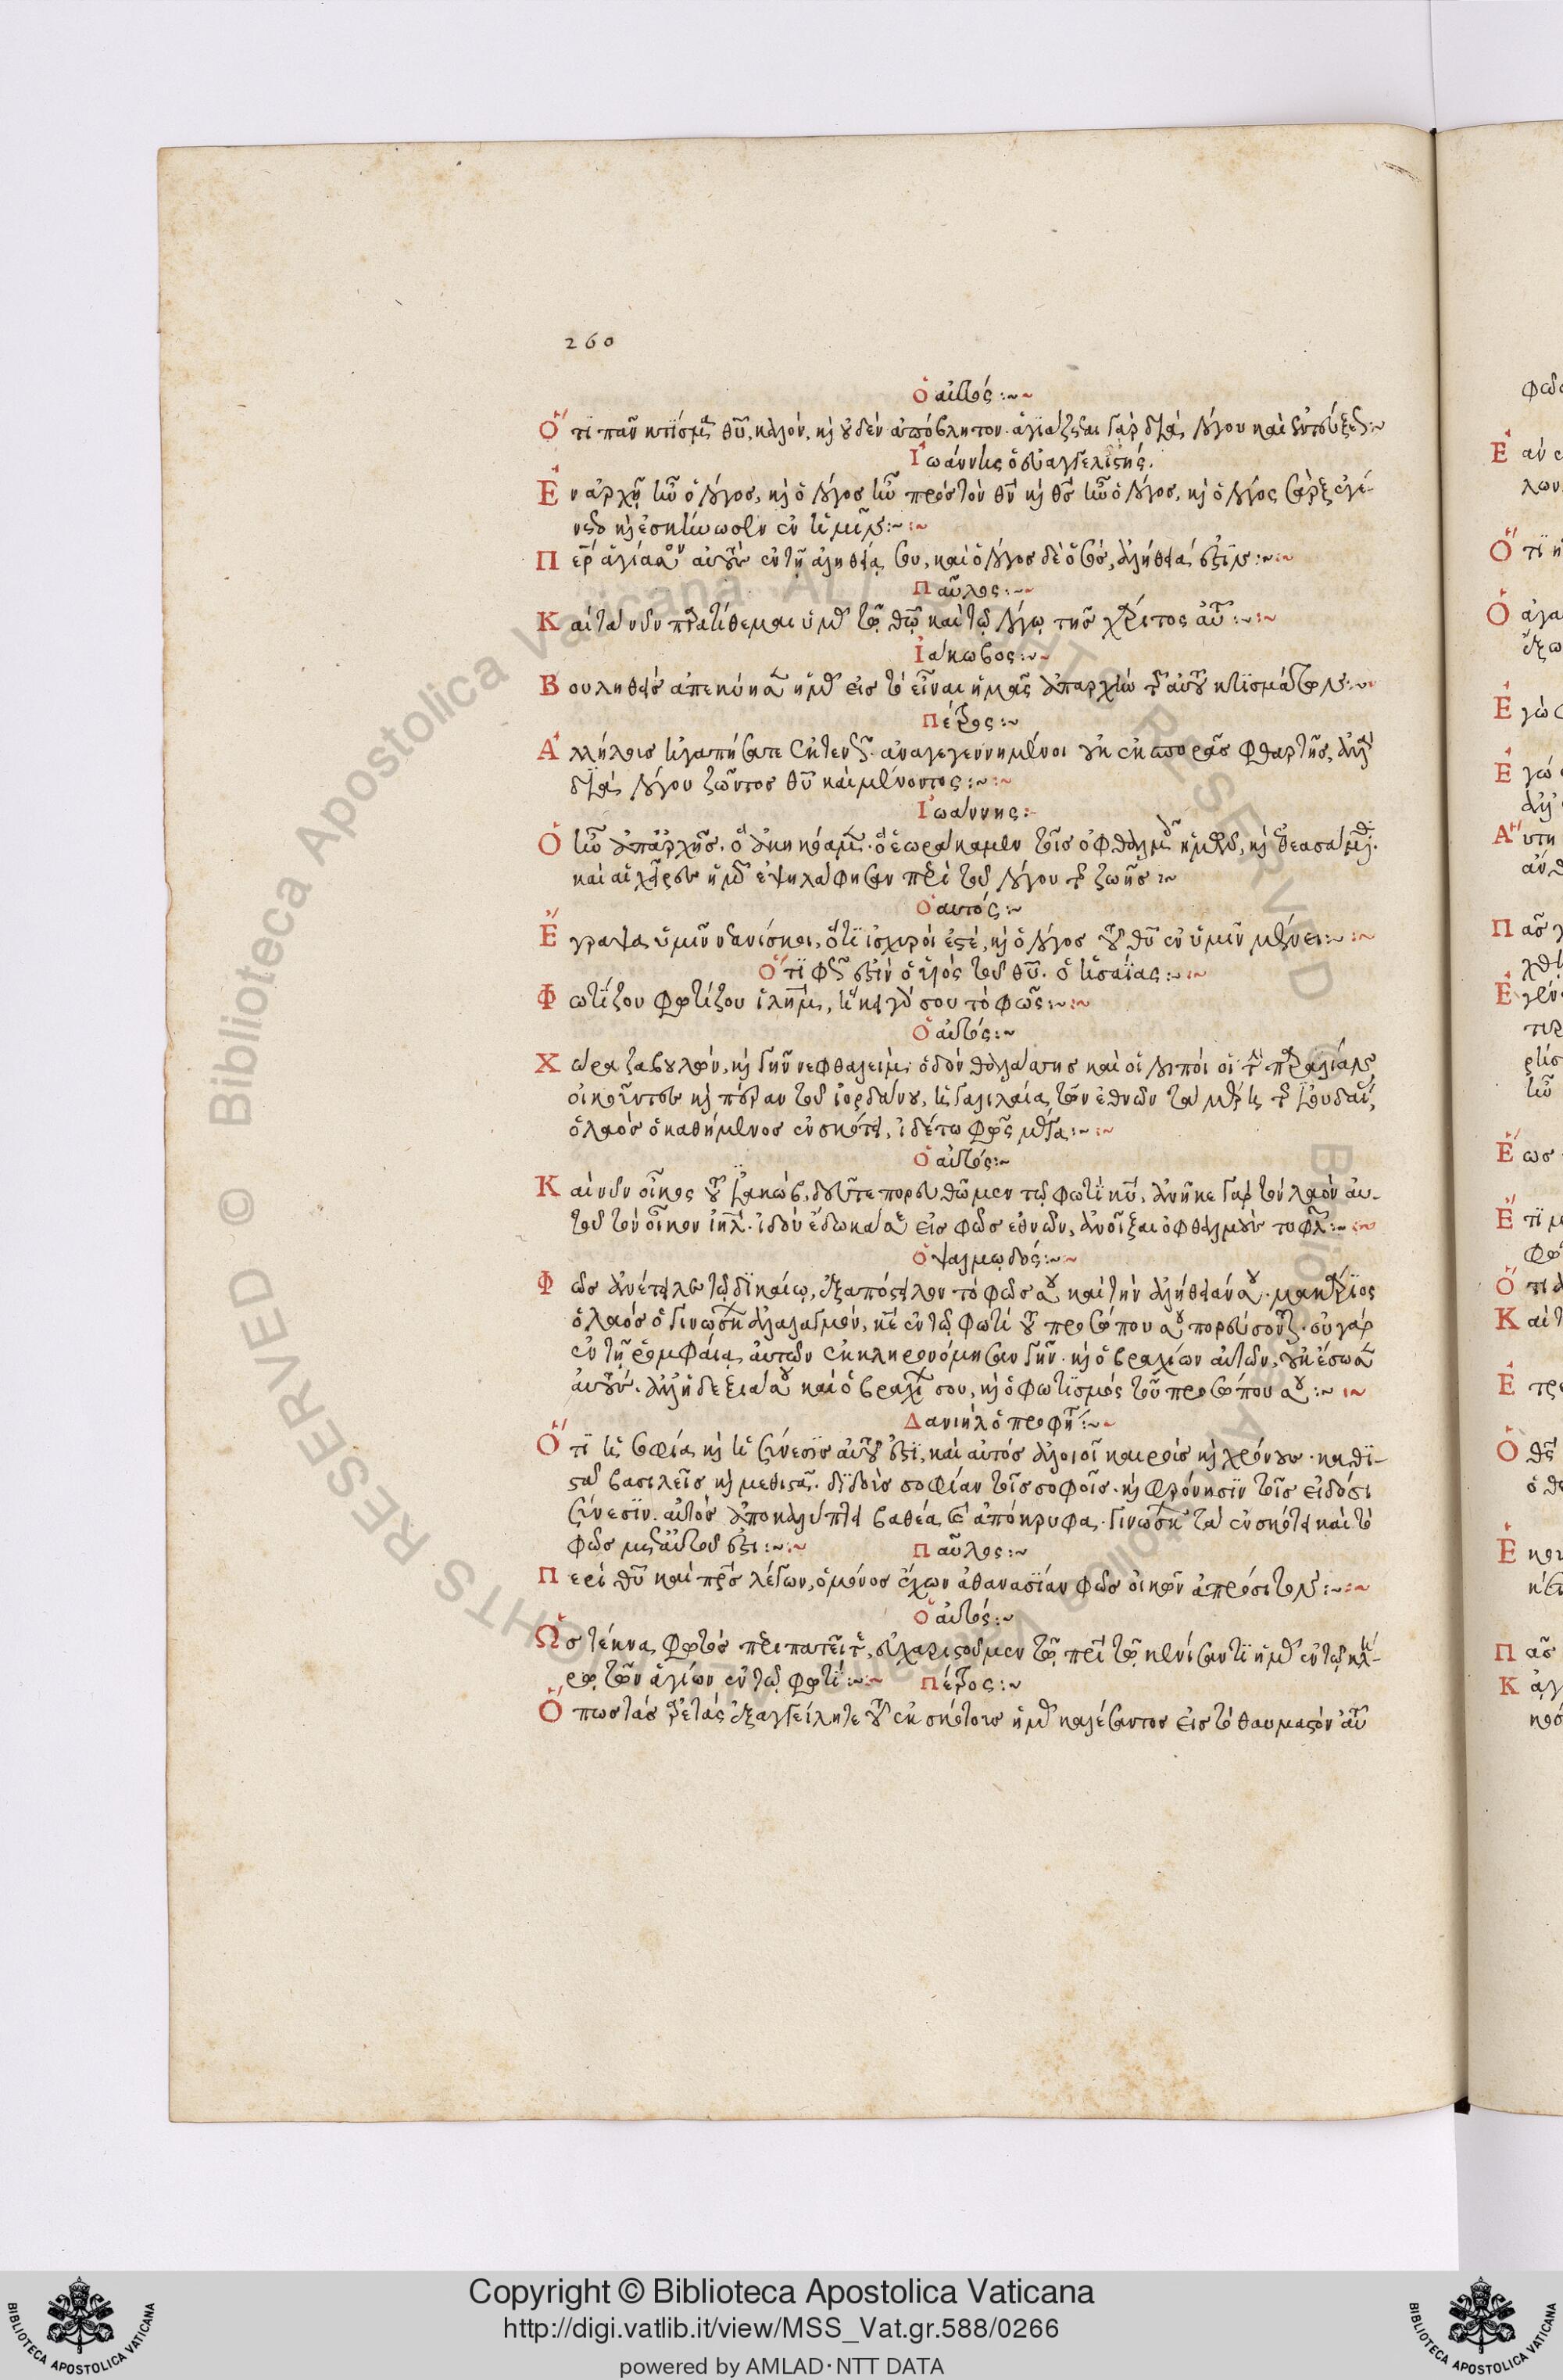 260
Ὁ αὐτός:~
Ὅτι πᾶν κτίσμα θῦ, καλόν, καὶ οὐδὲν ἀπόβλητον. ἁγιάζεται γὰρ διὰ λόγου καὶ ἐντεύξεως:~
Ἰωάννης ὁ εὐαγγελιστής.
Ἐν ἀρχῇ ἦν ὁ λόγος, καὶ ὁ λόγος ἦν πρὸς τὸν θν καὶ θς ἦν ὁ λόγος, καὶ ὁ λόγος σὰρξ ἐγέ-
νετο καὶ ἐσκήνωσεν ἐν ἡμῖν:~
Περ ἁγίασον αὐτοὺς ἐν τῇ ἀληθείᾳ σου, καὶ ὁ λόγος δὲ ὁ σός, ἀλήθειά ἐστιν:~
Παῦλος:~
Καὶ τὰ νῦν παρατίθεμαι ὑμᾶς τῷ θῷ καὶ τῷ λόγῳ τῆς χάριτος αὐτοῦ:~
Ἰάκωβος:~
Βουληθεὶς ἀπεκύησεν ἡμᾶς εἰς τὸ εἶναι ἡμᾶς ἀπαρχὴν τῶν αὐτοῦ κτισμάτων:~
Πέτρος:~
Ἀλλήλοις ἠγαπήσατε ἐκτενῶς. ἀναγεγεννημένοι οὐκ ἐκ σπορᾶς φθαρτῆς, ἀλλὰ
διὰ λόγου ζῶντος θῦ καὶ μένοντος:~
Ἰωάννης:
Ὃ ἦν ἀπ' ἀρχῆς. ὃ ἀκηκόαμεν. ὃ ἑωράκαμεν τοῖς ὀφθαλμοῖς ἡμῶν, καὶ ἐθεασάμεθα.
καὶ αἱ χεῖρες ἡμῶν ἐψηλάφησαν περὶ τοῦ λόγου τῆς ζωῆς:~
Ὁ αυτός:~
Ἔγραψα ὑμῖν νεανίσκοι, ὅτι ἰσχυροί ἐστέ, καὶ ὁ λόγος τοῦ θῦ ἐν ὑμῖν μένει:~
Ὅτι φῶς ἐστὶν ὁ υἱὸς τοῦ θῦ. ὁ ἠσαΐας:~
Φωτίζου φωτίζου ἱλημ, ἥκει γάρ σου τὸ φῶς:~
Ὁ αὐτός:~
Χώρα ζαβουλών, καὶ γῆ νεφθαλείμ, ὁδὸν θαλάσσης καὶ οἱ λοιποὶ οἱ τὴν παραλίαν,
οἰκοῦντες καὶ πέραν τοῦ ἰορδάνου, ἡ γαλιλαία, τῶν ἐθνῶν τὰ μέρη τῆς ἰουδαίας,
ὁ λαὸς ὁ καθήμενος ἐν σκότει, ἴδετω φῶς μέγα:~
Ὁ αὐτός:~
Καὶ νῦν οἶκος τοῦ ἰακώβ, δεῦτε πορευθῶμεν τῷ φωτὶ κῦ, ἀνῆκε γὰρ τὸν λαὸν αὐ-
τοῦ τὸν οἶκον ἰηλ. ἰδοὺ ἔδωκά σε εἰς φῶς ἐθνῶν, ἀνοῖξαι ὀφθαλμοὺς τυφλῶν:~
Ὁ ψαλμῳδός:~
Φῶς ἀνέτειλε τῷ δικαίῳ, ἐξαπόστειλον τὸ φῶς σου καὶ τὴν ἀλήθειάν σου. μακάριος
ὁ λαὸς ὁ γινώσκων ἀλαλαγμόν, κε ἐν τῷ φωτὶ τοῦ προσώπου σου πορεύσονται. οὐ γὰρ
ἐν τῇ ῥομφαίᾳ αὐτῶν ἐκληρονόμησαν γῆν. καὶ ὁ βραχίων αὐτῶν, οὐκ ἔσωσεν
αὐτούς. ἀλλ' ἡ δεξιά σου καὶ ὁ βραχίων σου, καὶ ὁ φωτισμὸς τοῦ προσώπου σου:~
Δανιὴλ ὁ προφήτης:~
Ὅτι ἡ σοφία καὶ ἡ σύνεσις αὐτοῦ ἐστι, καὶ αὐτὸς ἀλοιοῖ καιροὺς καὶ χρόνους. καθι-
στᾷ βασιλεῖς καὶ μεθιστᾷ. διδοὺς σοφίαν τοῖς σοφοῖς. καὶ φρόνησιν τοῖς εἰδόσι
σύνεσιν. αὐτὸς ἀποκαλύπτει βαθέα καὶ ἀπόκρυφα. γινώσκων τὰ ἐν σκότει καὶ τὸ
φῶς μετ' αὐτοῦ ἐστι:~ Παῦλος:~
Περὶ θῦ καὶ πρς λέγων, ὁ μόνος ἔχων ἀθανασίαν φῶς οἰκῶν ἀπρόσιτον:~
Ὁ αὐτός:~
Ὡς τέκνα φωτὸς περιπατεῖτε, εὐχαριστοῦμεν τῷ πρὶ τῷ ἱκανώσαντι ἡμᾶς ἐν τῷ κλή-
ρῳ τῶν ἁγίων ἐν τῷ φωτί:~ Πέτρος:~
Ὅπως τὰς ἀρετὰς ἐξαγγείλητε τοῦ ἐκ σκότους ἡμᾶς καλέσαντος εἰς τὸ θαυμαστὸν αὐτοῦ
Copyright © Biblioteca Apostolica Vaticana
http://digi.vatlib.it/view/MSS_Vat.gr.588/0266
powered by AMLAD·NTT DATA